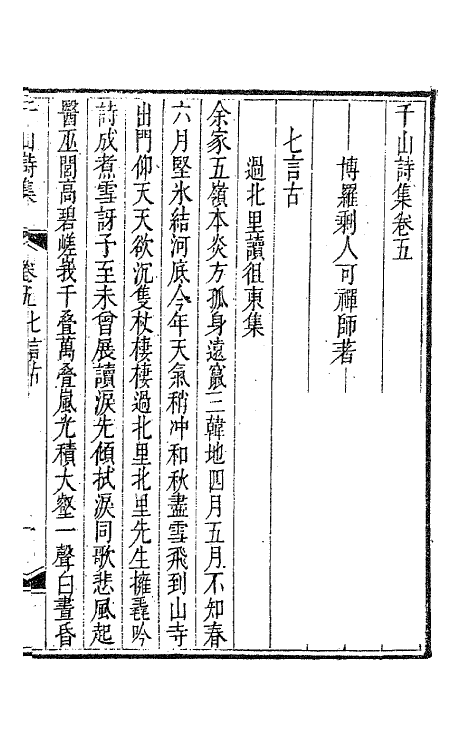 千山詩集卷五
博羅剩人可禪師著
七言古
過北里讀徂東集
余家五嶺本炎方孤身遠竄三韓地四月五月不知春
六月堅氷結河底今年天氣稍冲和秋盡雪飛到山寺
出門仰天天欲沉隻杖棲棲過北里北里先生擁毳吟
詩成煮雪訝予至未曾展讀淚先傾拭淚同歌悲風起
醫巫閭高碧嵯峩千叠萬叠嵐光積大壑一聲白晝昏
千山詩集 卷五七言古 一